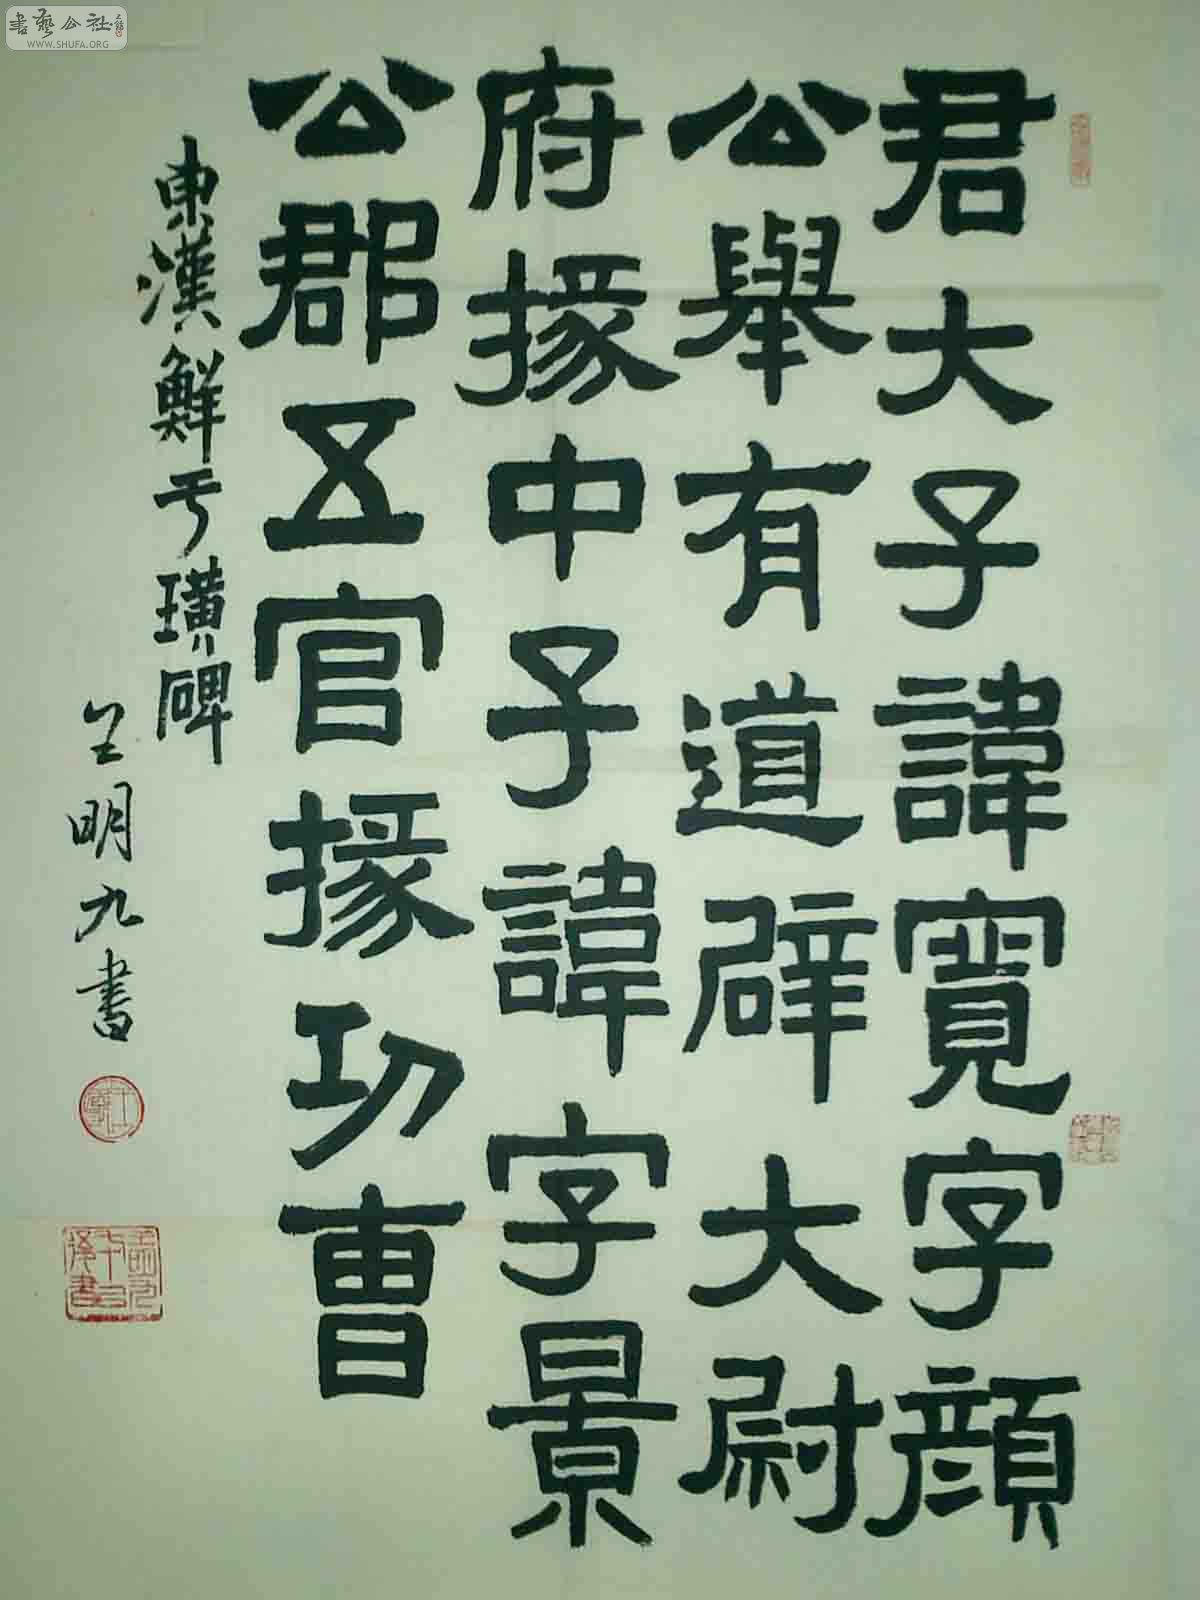 君大子諱寬字顏
公舉有道辟大尉
府掾中子諱字景
公郡五官掾功曹
東漢鮮于璜碑
王明九書
書藝公社
WWW.SHUFA.ORG